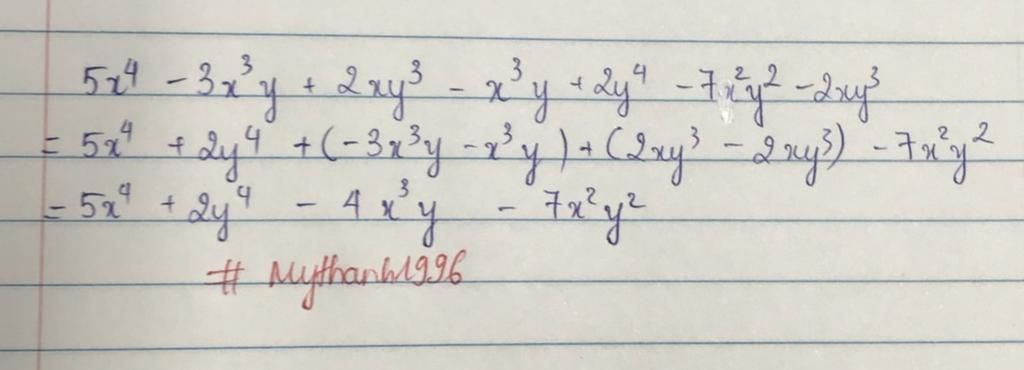 5x⁴ - 3x³y + 2xy³ - x³y + 2y⁴ - 7x²y² - 2xy³
= 5x⁴ + 2y⁴ + (-3x³y - x³y) + (2xy³ - 2xy³) - 7x²y²
= 5x⁴ + 2y⁴ - 4x³y - 7x²y²
# Mythanh1996